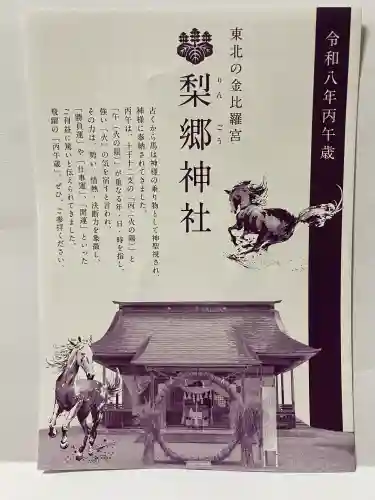 令和八年丙午歳
東北の金比羅宮
梨郷神社
りんごう
古くから馬は神様の乗り物として神聖視され、
神様に奉納されてきました。
丙午は、十干十二支の「丙（火の陽）」と
「午（火の陽）」が重なる年・日・時を指し、
強い「火」の気を宿すと言われ、
その力は、勢い、情熱・決断力を象徴し、
「勝負運」や「仕事運」、「開運」といった
ご利益に篤いと伝えられてきました。
飛躍の「丙午歳」、ぜひ、ご参拝ください。